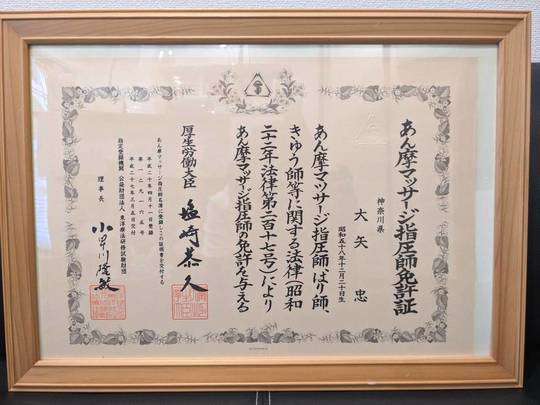 あん摩マッサージ指圧師免許証
神奈川県
大矢 忠
昭和五十八年十二月二十日生
あん摩マツサージ指圧師、はり師、
きゆう師等に関する法律(昭和
二十二年法律第二百十七号)により
あん摩マッサージ指圧師の免許を与える
厚生労働大臣 塩崎恭久
あん摩マッサージ指圧師名簿に登録しこの証明書を交付する
平成二十年四月十一日登録
平成二十七年三月五日交付
指定登録機関 公益財団法人 東洋療法研修試験財団
理事長 小早川隆敏